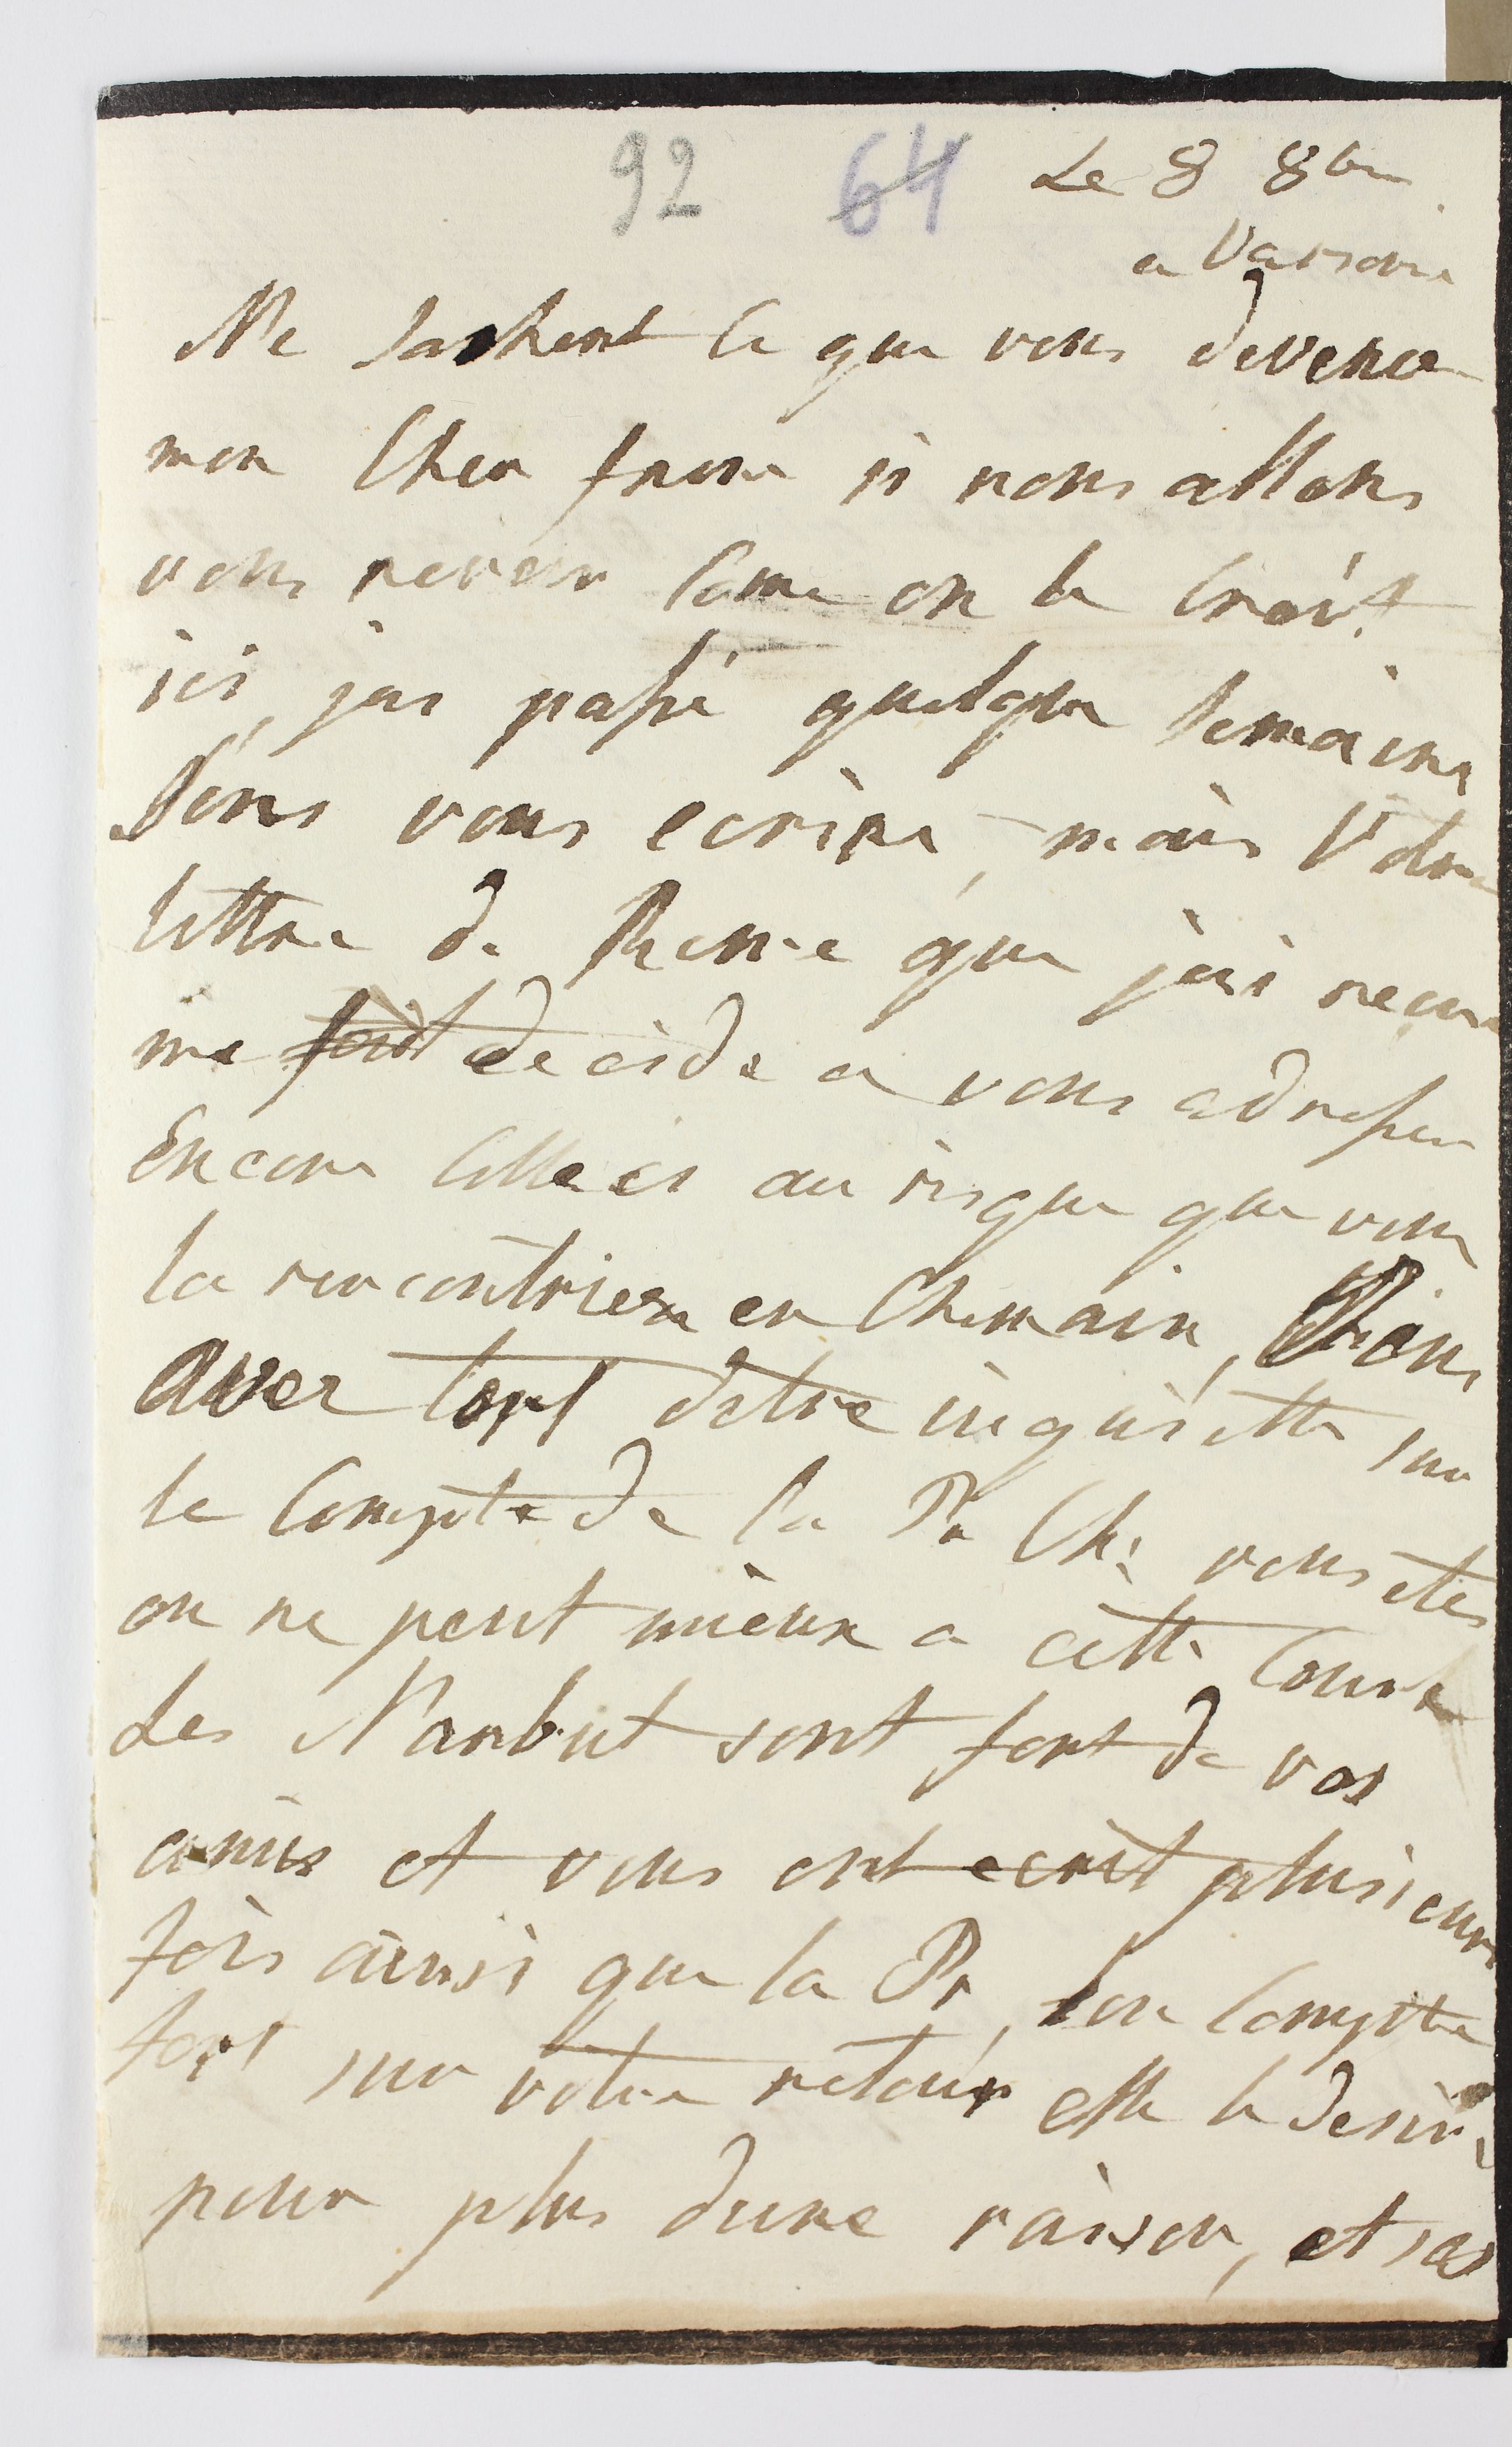 92 64 Le 8 8bre
a Varsovie
Ne sachent ce que vous devenez
mon Cher frere si nous allons
vous revoir Come on le Croit
ici, jai passé quelque semaine
sens vous ecrire, mais Votre
lettre de Rome que jai recue
me fait decide a vous adresser
Encore Celle ci au risque que vous
la rencontriez en Chemain, Vous
Avez tort detre inquiette sur
le Compte de la Pr Ch: vous etes
on ne peut mieux a cette Cour
Les Narbut sont fort de vos
amis et vous ont ecrit plusieurs
fois ainsi que la Pr, lon Compte
fort sur votre retour elle le desire
pour plus dune raison, et ses